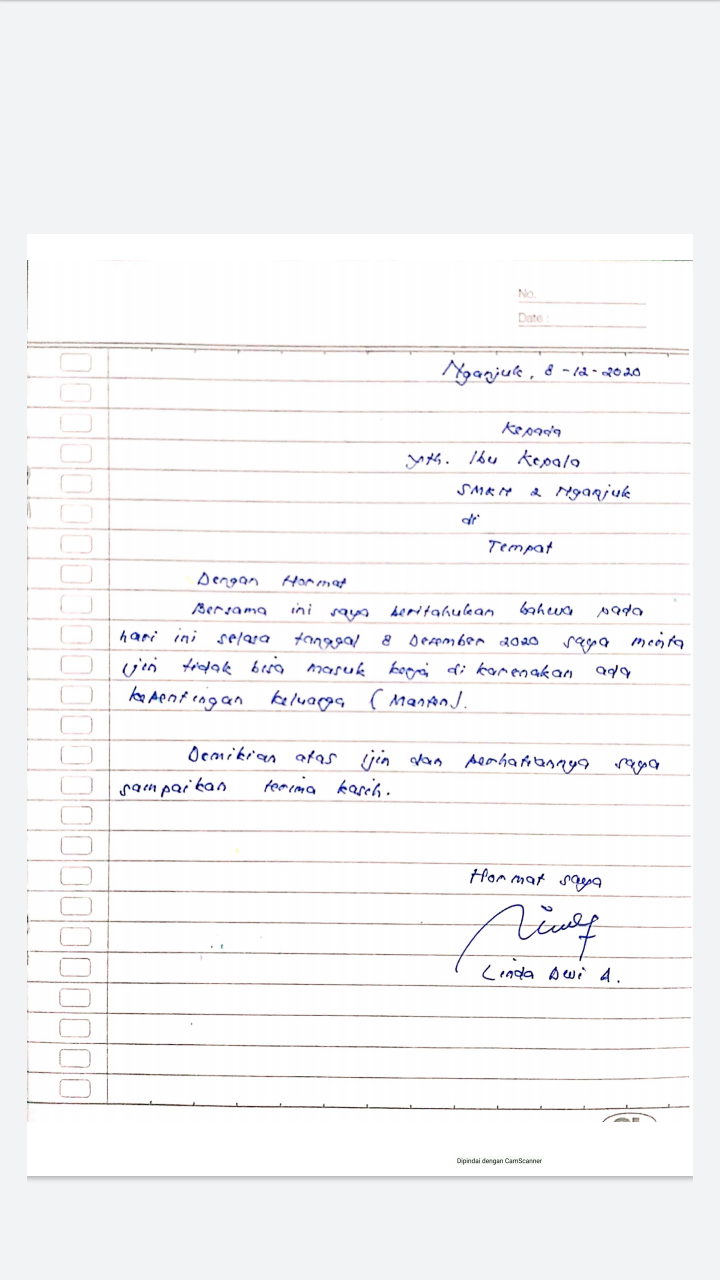 No.
Date :
Nganjuk, 8-12-2020
Kepada
yth. Ibu Kepala
SMKN 2 Nganjuk
di
Tempat
Dengan Hormat
Bersama ini saya beritahukan bahwa pada
hari ini selasa tanggal 8 Desember 2020 saya minta
ijin tidak bisa masuk kerja di karenakan ada
kepentingan keluarga (Manten).
Demikian atas ijin dan perhatiannya saya
sampaikan terima kasih.
Hormat saya
Linda Dwi A.
Dipindai dengan CamScanner